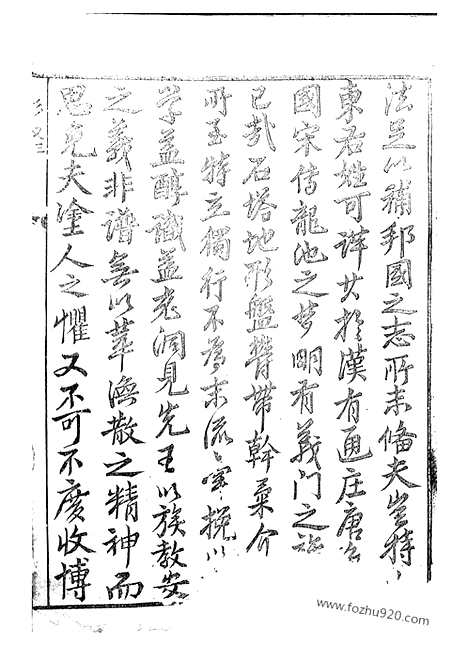 法足以補邦國之志所未備夫豈特
東君姓可詳其於漢有通庄唐
國宋傳龍池之夢明有義門之
已哉石塔地形盤帶幹
所至特立獨行不為末流
学益醇識益老洞見先王以族教安
之義非譜無以萃渙散之精神而
思免夫塗人之懼又不可不廣收博
www.fozhu920.com